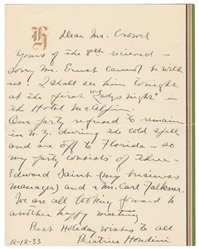 H
Dear Mr. Crowe
Yours of the 8th received -
Sorry Mr. Ernst cannot be with
us! I shall see him tonight
at the first "Lady night" in
the Hotel McAlpin.
Our party refused to remain
in N.Y. during the cold spell
and are off to Florida - so
my party consists of three -
Edward Saint (my business
manager) and a Mr. Carl Falkner.
We are all looking forward to
another happy meeting
Best Holiday wishes to all
12-12-33 Beatrice Houdini